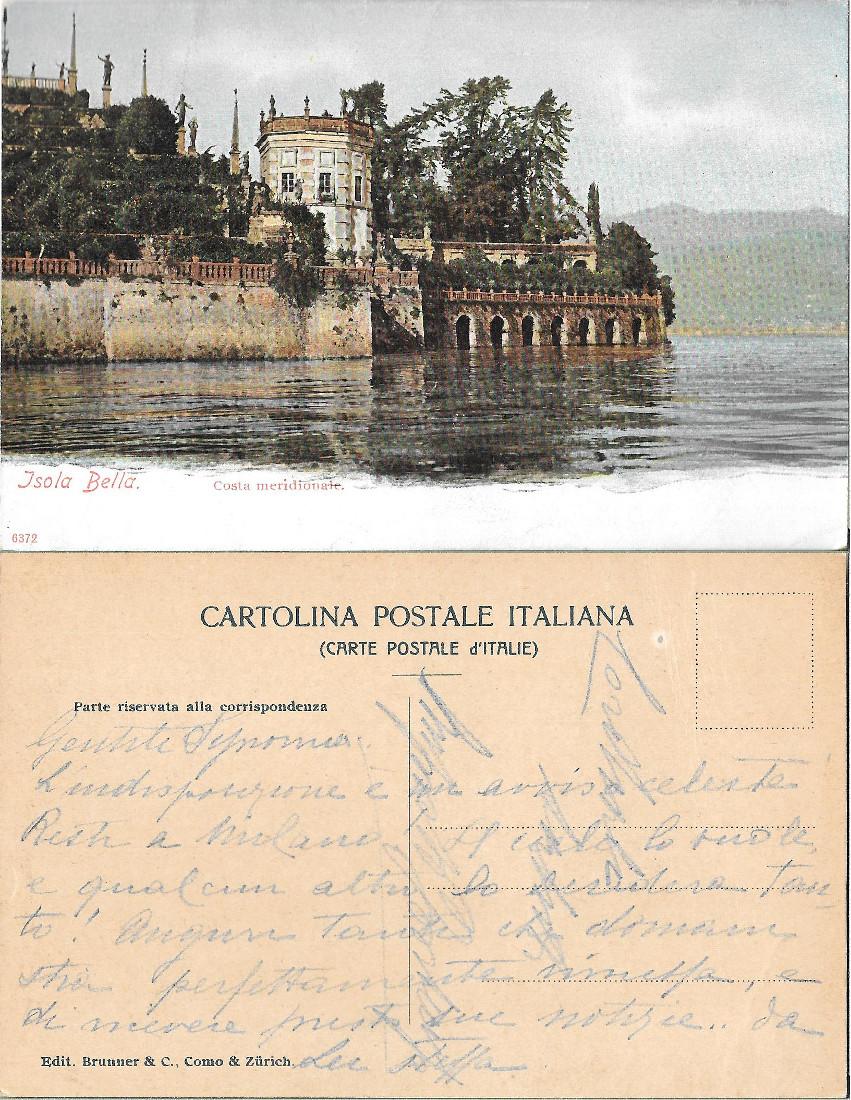 Isola Bella.
Costa meridionale.
6372
CARTOLINA POSTALE ITALIANA
(CARTE POSTALE d'ITALIE)
Parte riservata alla corrispondenza
Gentile Signorina
L'indisposizione è un avviso celeste!
Resti a Milano. Il cielo lo vuole,
e qualcun altro lo desidera tan-
to! Auguri tanti che domani
stia perfettamente rimessa, e
di ricevere presto sue notizie.. da
Lei stessa
Edit. Brunner & C., Como & Zürich.